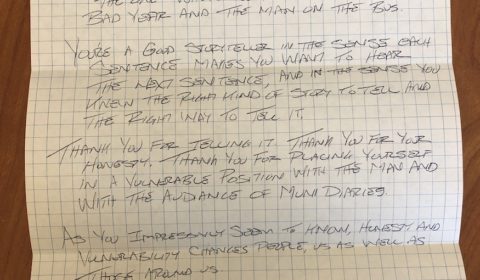 BAD YEAR AND THE MAN ON THE BUS.
YOU'RE A GOOD STORYTELLER IN THE SENSE EACH
SENTENCE MAKES YOU WANT TO HEAR
THE NEXT SENTENCE, AND IN THE SENSE YOU
KNEW THE RIGHT KIND OF STORY TO TELL AND
THE RIGHT WAY TO TELL IT.
THANK YOU FOR TELLING IT. THANK YOU FOR YOUR
HONESTY. THANK YOU FOR PLACING YOURSELF
IN A VULNERABLE POSITION WITH THE MAN AND
WITH THE AUDIANCE OF MUNI DIARIES.
AS YOU IMPRESSIVLY SEEM TO KNOW, HONESTY AND
VULNERABILITY CHANGES PEOPLE, US AS WELL AS
THOSE AROUND US.